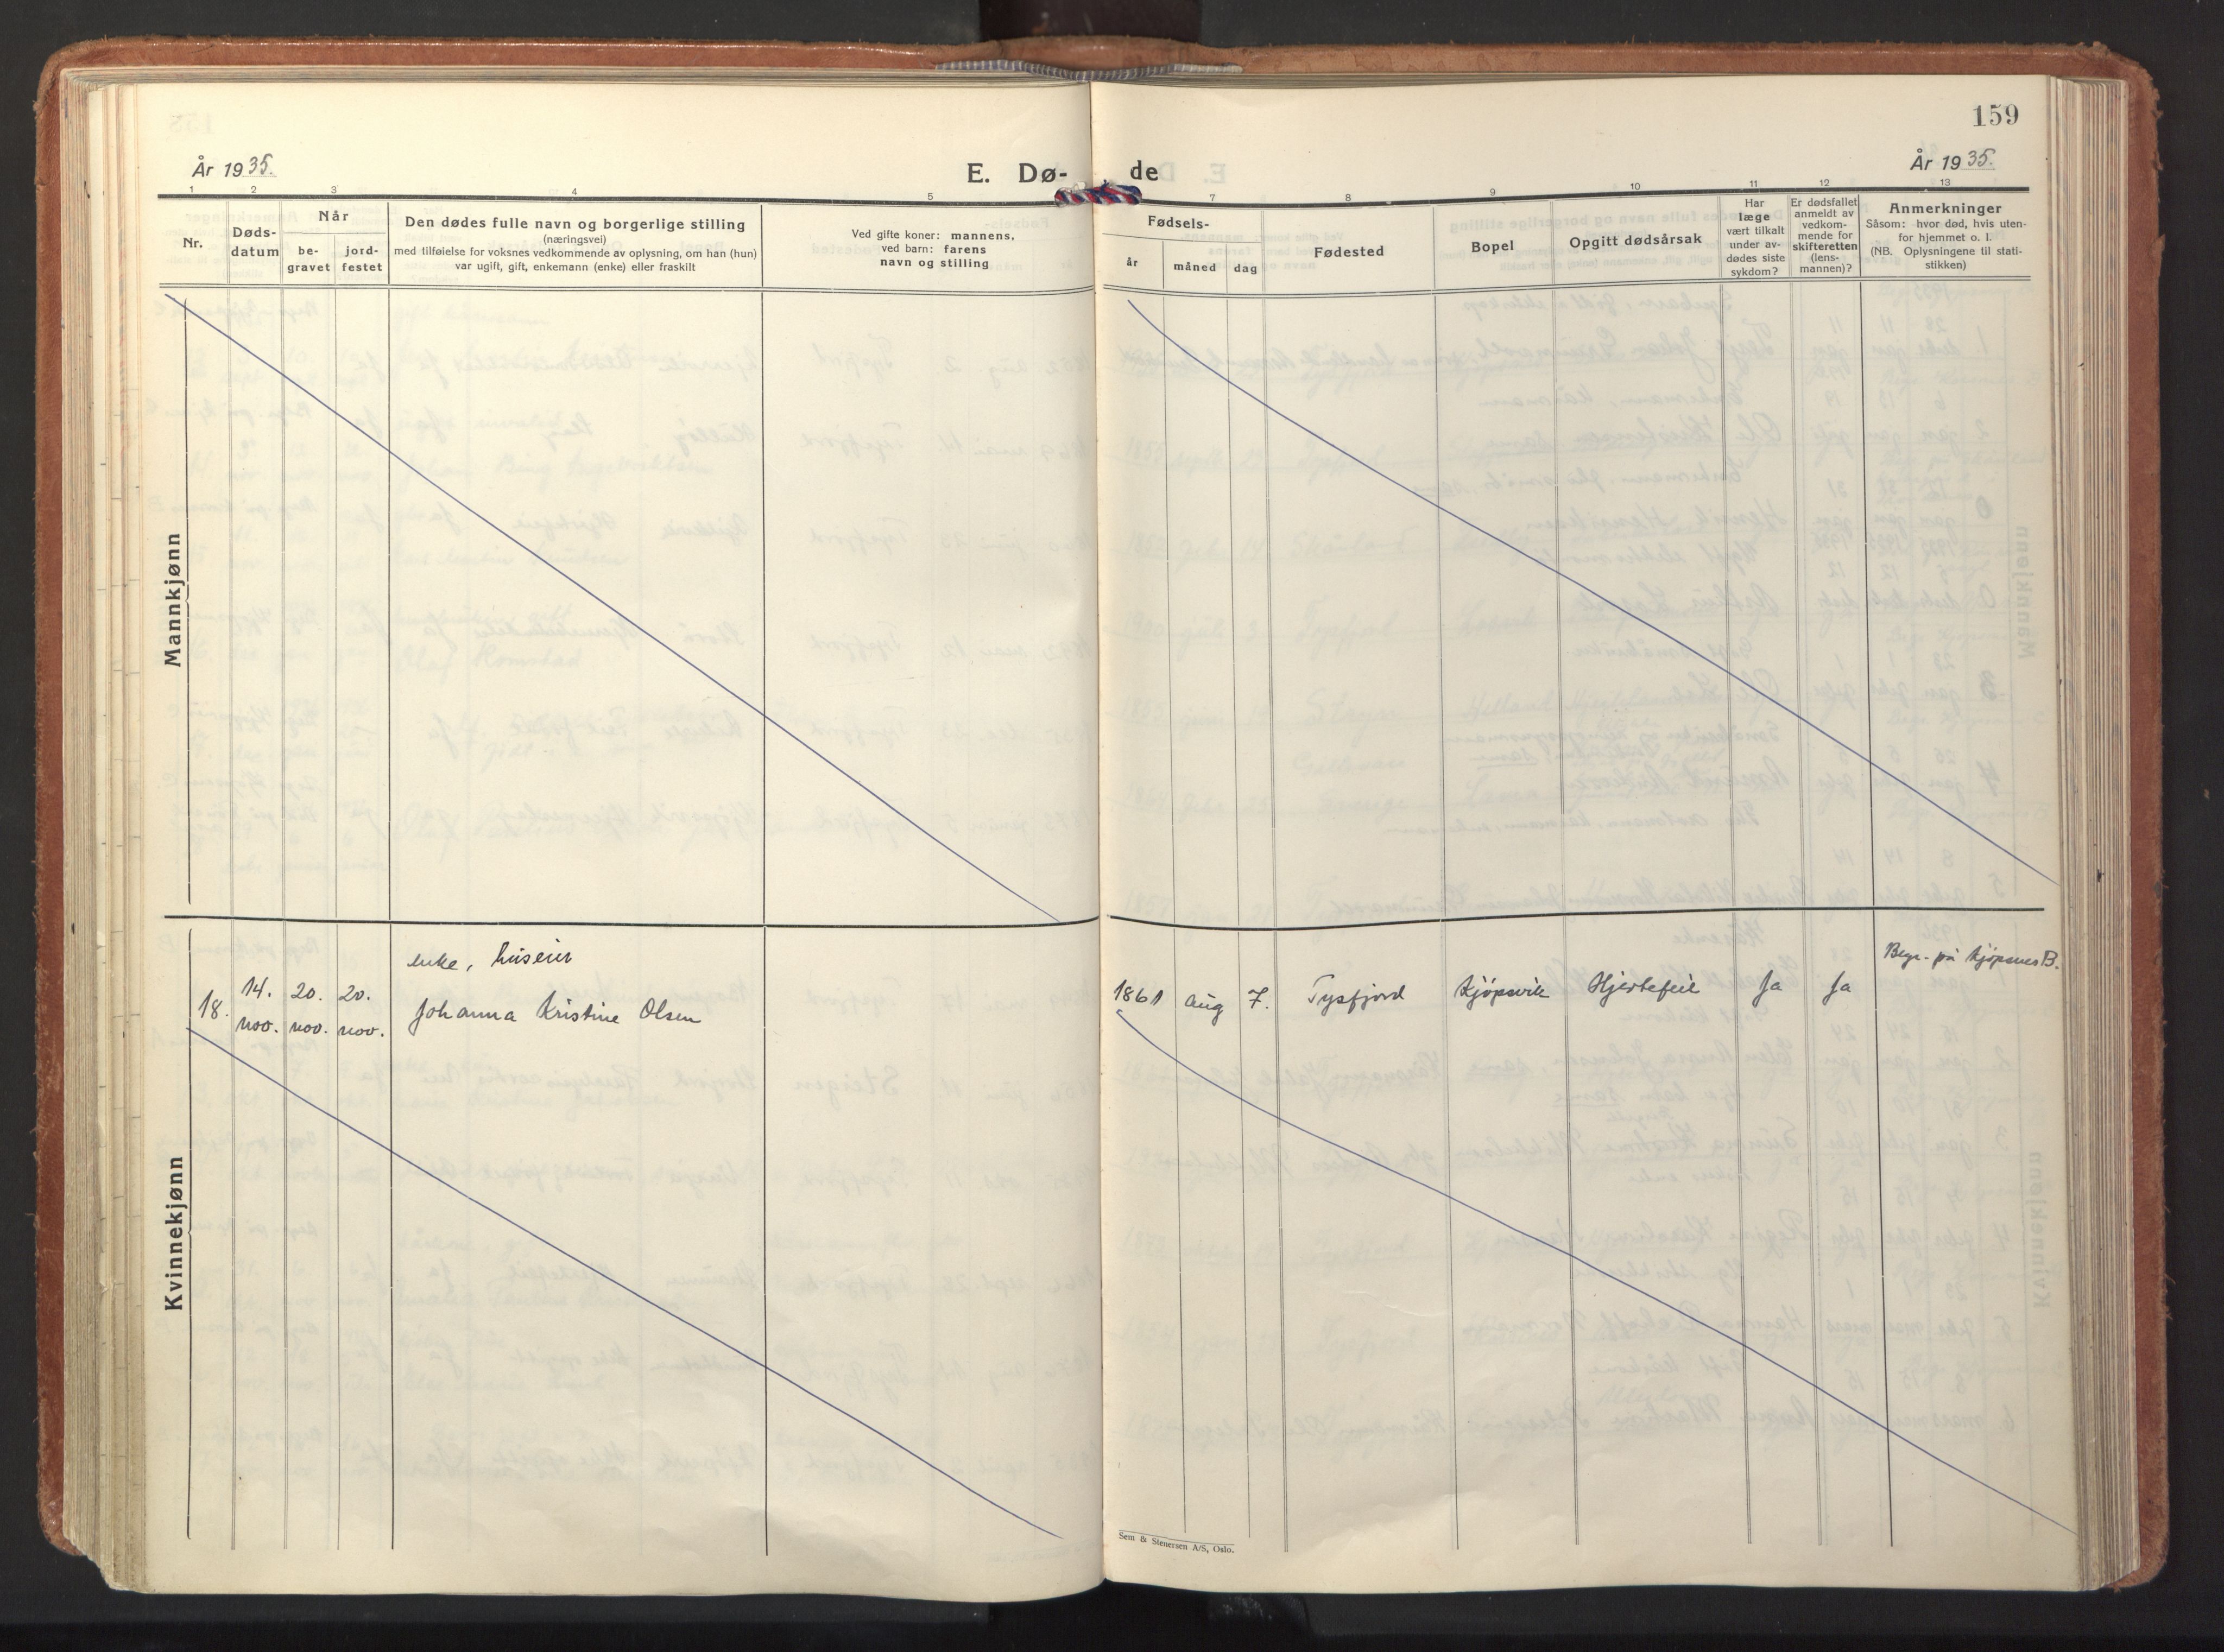 159
År 1935.
E. Dø- de
År 1935.
1 2 3 4 5 7 8 9 10 11 12 13
Nr.
Døds-
datum
Når
be-
gravet
jord-
festet
Den dødes fulle navn og borgerlige stilling
(næringsvei)
med tilføielse for voksnes vedkommende av oplysning, om han (hun)
var ugift, gift, enkemann (enke) eller fraskilt
Ved gifte koner: mannens,
ved barn: farens
navn og stilling
Fødsels-
år
måned
dag
Fødested
Bopel
Opgitt dødsårsak
Har
læge
vært tilkalt
under av-
dødes siste
sykdom?
Er dødsfallet
anmeldt av
vedkom-
mende for
skifteretten
(lens-
mannen)?
Anmerkninger
Såsom: hvor død, hvis uten-
for hjemmet o. l.
(NB. Oplysningene til stati-
stikken)
Mannkjønn
Kvinnekjønn
enke, huseier
Begr. på Kjøpsnes B.
18. 14. nov. 20. nov. 20. nov. Johanna Kristine Olsen 1861 aug 7. Tysfjord Kjøpsvik Hjertefeil Ja Ja
Sem & Stenersen A/S, Oslo.